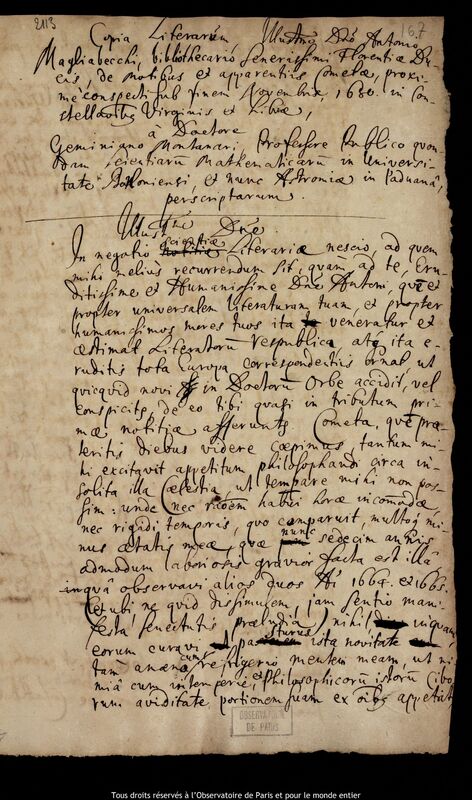 2113
167
Copia Literarum Illustrmo Dno Antonio
Magliabecchi, bibliothecario Serenissimi Florentiæ Du-
cis, de motibus et apparentiis Cometæ, proxi-
mè conspecti sub finem Novembris 1680. in Con-
stellaōibq Virginis et Libræ,
à Doctore
Geminiano Montanari, Professore Publico quon-
dam scientiarum Mathematicarum in Universi-
tate Bononiensi, et nunc Astromiæ in Paduanâ,
perscriptarum.
Illustme Dne
In negotio scientiæ Literariæ nescio, ad quem
mihi melius recurrendum sit, quàm ad te, Eru-
ditissime et Humanissime Dne Antoni, quē et
propter universalem literaturam tuam, et propter
humanissimos mores tuos ita veneratur et
æstimat Literatorū respublica, atq ita e-
ruditis tota Europa correspondentiis ornat, ut
quicquid novi in Doctorū Orbe accidit, vel
conspicitr, de eo tibi quasi in tributum pri-
mæ notitiæ afferunt. Cometa, quē præ
teritis diebus videre cœpimus, tantum mi-
hi excitavit appetitum philosophandi circa in-
solita illa Cœlestia, ut temperare mihi non pos-
sim: unde nec raōem habui horæ incomodæ,
nec rigidi temporis, quo comparuit, multoq mi
nus ætatis meæ, quæ nunc sedecim annis
admodum laboriosis gravior facta est illâ
inquâ observavi alios duos Ai 1664. et 1665.
(et ubi ne quid dissimulem, jam sentio mani-
festa senectutis præludia) nihil inquam
eorum curavi pasturus ista novitate
tam amæna refrigerio mentem meam, ut ni-
miâ cum intemperie, et Philosophicorū istorū cibo
rum aviditate portionem suam ex oībq appetat
OBSERVATOIRE
DE PARIS
Tous droits réservés à l'Observatoire de Paris et pour le monde entier